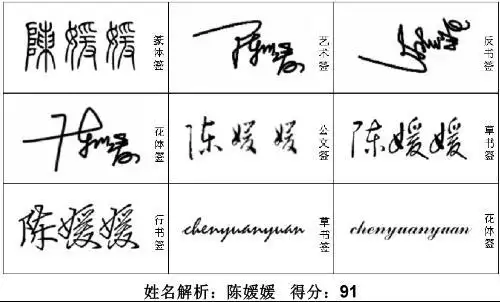 陳媛媛
篆体签
艺术签
反书签
花体签
陈媛媛
公文签
陈媛媛
草书签
陈媛媛
行书签
chenyuanyuan
草书签
chenyuanyuan
花体签
姓名解析：陈媛媛 得分：91